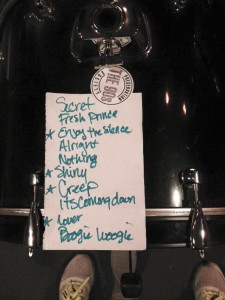 THE 90S
Secret
Fresh Prince
* Enjoy the Silence
Alright
Nothing
* Shiny
* Creep
Its Coming down
* Lover
Boogie Woogie